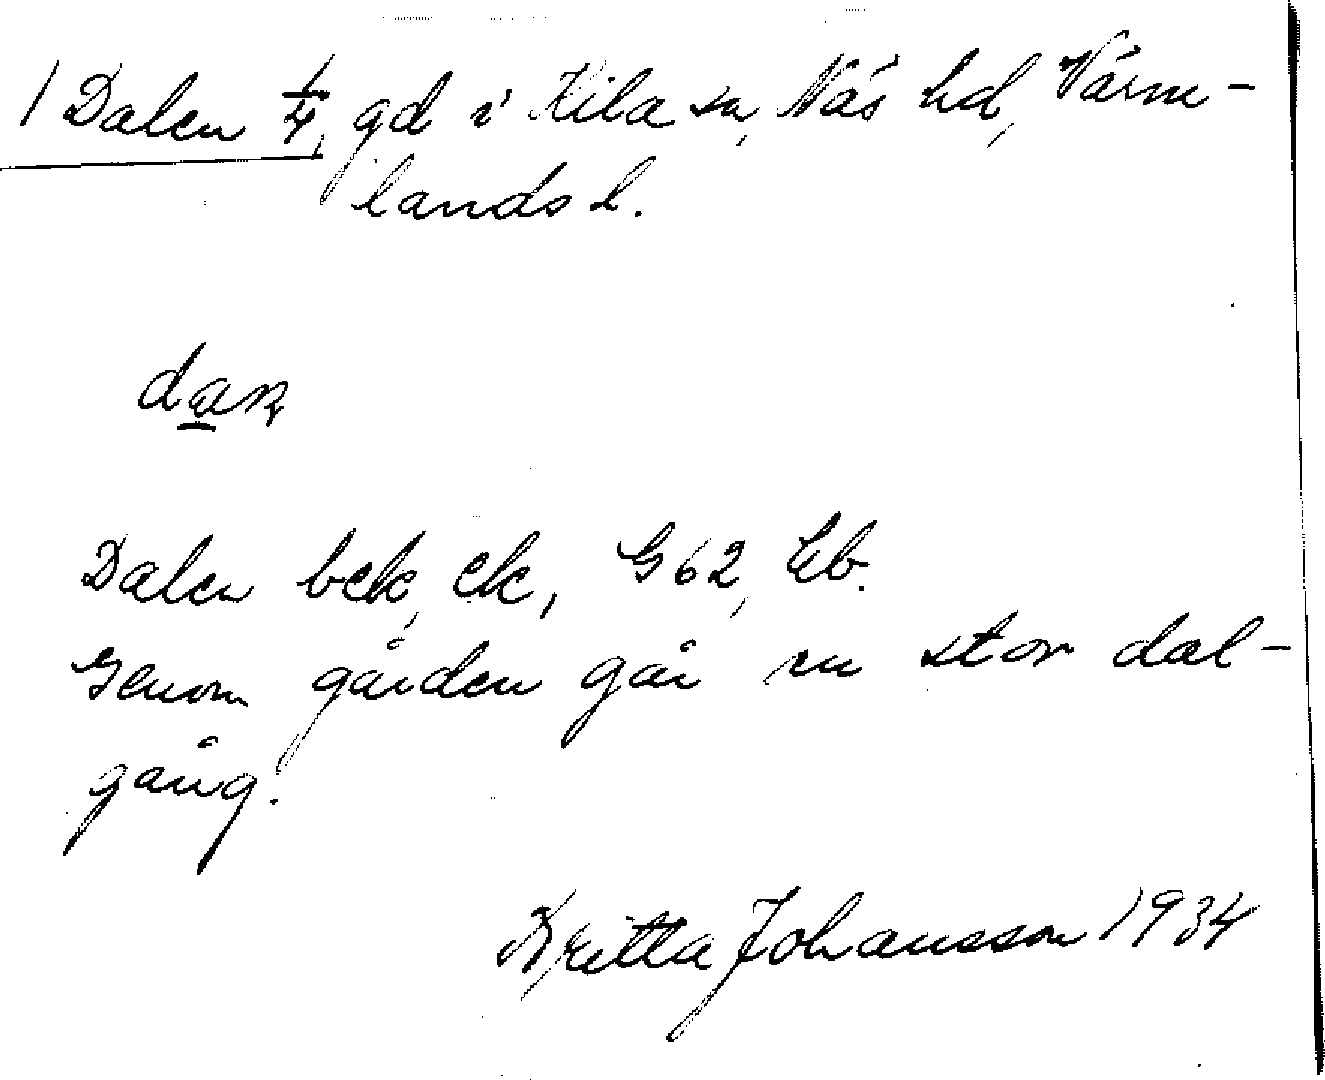 / Dalen 1/4, gd i Kila sn, Näs hd, Värm-
lands l.
Dalen bek, ek, G 62, Eb.
Genom gården går en stor dal-
gång.
Britta Johansson 1934